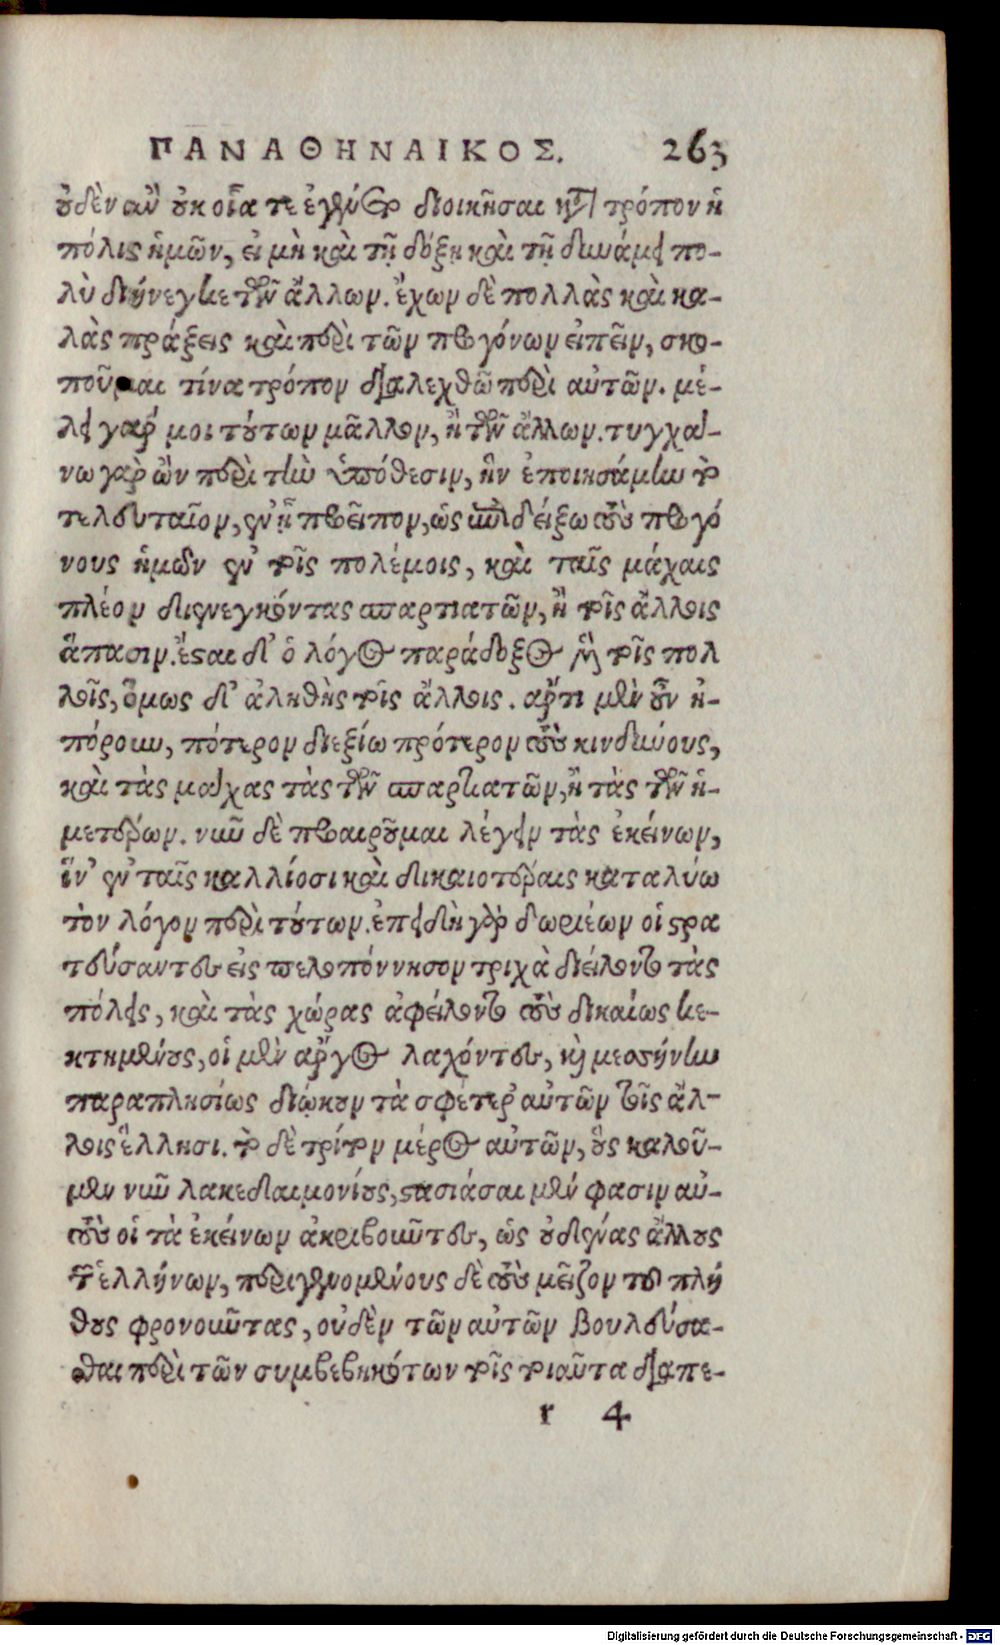 ΠΑΝΑΘΗΝΑΙΚΟΣ. 263
οὐδὲν ἂν οὐκ οἵα τε ἐγένετο διοικῆσαι κατὰ τρόπον ἡ
πόλις ἡμῶν, εἰ μὴ καὶ τῇ δόξῃ καὶ τῇ δυνάμει πο-
λὺ διήνεγκε τῶν ἄλλων. ἔχων δὲ πολλὰς καὶ κα-
λὰς πράξεις καὶ περὶ τῶν προγόνων εἰπεῖν, σκο-
ποῦμαι τίνα τρόπον διαλεχθῶ περὶ αὐτῶν. μέ-
λει γάρ μοι τούτων μᾶλλον, ἢ τῶν ἄλλων. τυγχά-
νω γὰρ ὢν περὶ τὴν ὑπόθεσιν, ἣν ἐποιησάμην τὸ
τελευταῖον, ἐν ᾗ προεῖπον, ὡς ἐπιδείξω τοὺς προγό
νους ἡμῶν ἐν τοῖς πολέμοις, καὶ ταῖς μάχαις
πλέον διενεγκόντας σπαρτιατῶν, ἢ τοῖς ἄλλοις
ἅπασιν. ἔσται δ' ὁ λόγος παράδοξος μὲν τοῖς πολ
λοῖς, ὅμως δ' ἀληθὴς τοῖς ἄλλοις. ἄρτι μὲν οὖν ἠ-
πόρουν, πότερον διεξίω πρότερον τοὺς κινδύνους,
καὶ τὰς μάχας τὰς τῶν σπαρτιατῶν, ἢ τὰς τῶν ἡ-
μετέρων. νῦν δὲ προαιροῦμαι λέγειν τὰς ἐκείνων,
ἵν' ἐν ταῖς καλλίοσι καὶ δικαιοτέραις καταλύω
τὸν λόγον περὶ τούτων. ἐπειδὴ γὰρ δωριέων οἱ στρα
τεύσαντες εἰς πελοπόννησον τριχὰ διείλοντο τὰς
πόλεις, καὶ τὰς χώρας ἀφείλοντο τοὺς δικαίως κε-
κτημένους, οἱ μὲν ἄργος λαχόντες, καὶ μεσσήνην
παραπλησίως διῴκουν τὰ σφέτερ' αὐτῶν τοῖς ἄλ-
λοις ἕλλησι. τὸ δὲ τρίτον μέρος αὐτῶν, οὓς καλοῦ-
μεν νῦν λακεδαιμονίους, στασιάσαι μέν φασιν αὐ-
τοὺς οἱ τὰ ἐκείνων ἀκριβοῦντες, ὡς οὐδένας ἄλλους
τῶν ἑλλήνων, περιγενομένους δὲ τοὺς μεῖζον τοῦ πλή
θους φρονοῦντας, οὐδὲν τῶν αὐτῶν βουλεύσα-
σθαι περὶ τῶν συμβεβηκότων τοῖς τοιαῦτα διαπε-
r 4
Digitalisierung gefördert durch die Deutsche Forschungsgemeinschaft - DFG